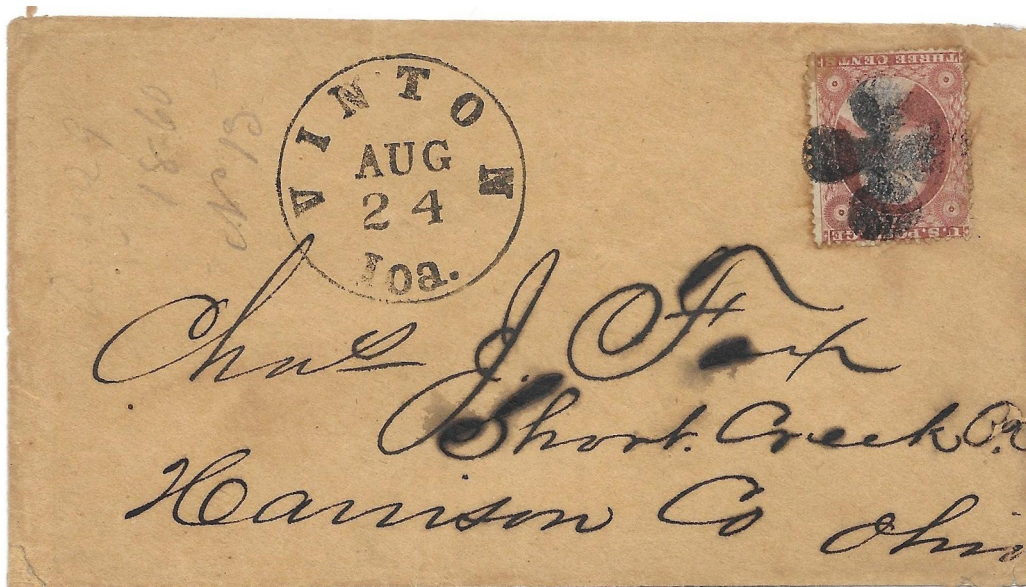 VINTON
AUG
24
Ioa.
THREE CENTS
U.S. POSTAGE
1860
Chas J. Fox
Short. Creek P.
Harrison Co Ohio